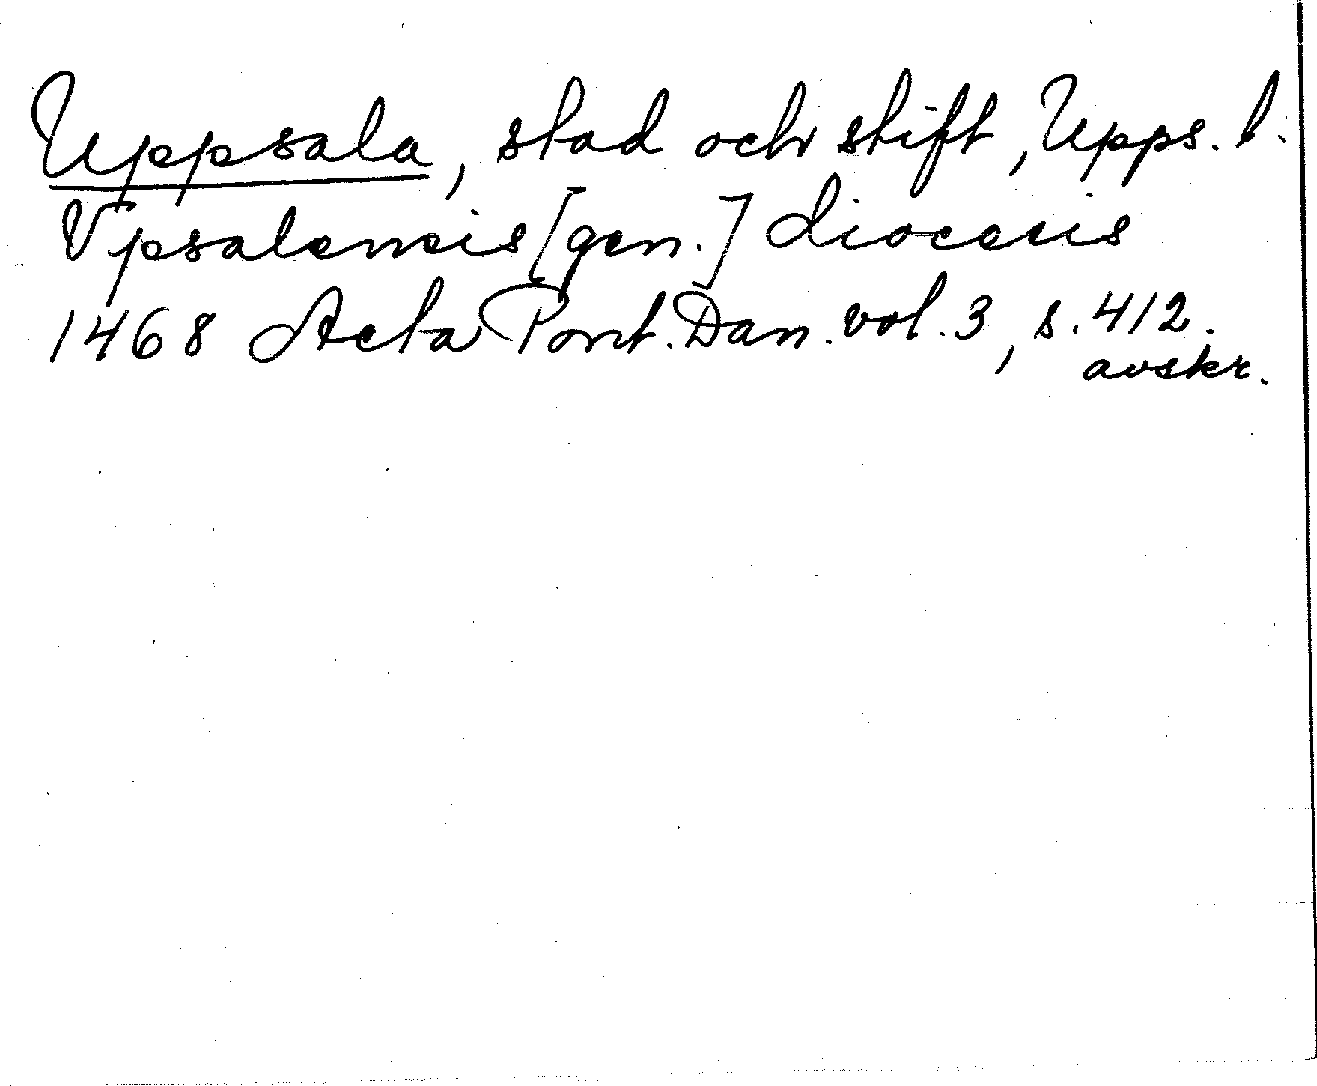 Uppsala, stad och stift, Upps. l.
Vpsalensis [gen.] diocesis
1468 Acta Pont. Dan. vol. 3, s. 412.
avskr.